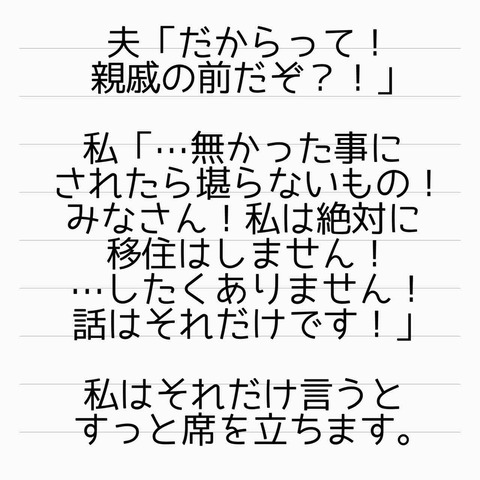 夫「だからって！
親戚の前だぞ？！」
私「…無かった事に
されたら堪らないもの！
みなさん！私は絶対に
移住はしません！
…したくありません！
話はそれだけです！」
私はそれだけ言うと
すっと席を立ちます。